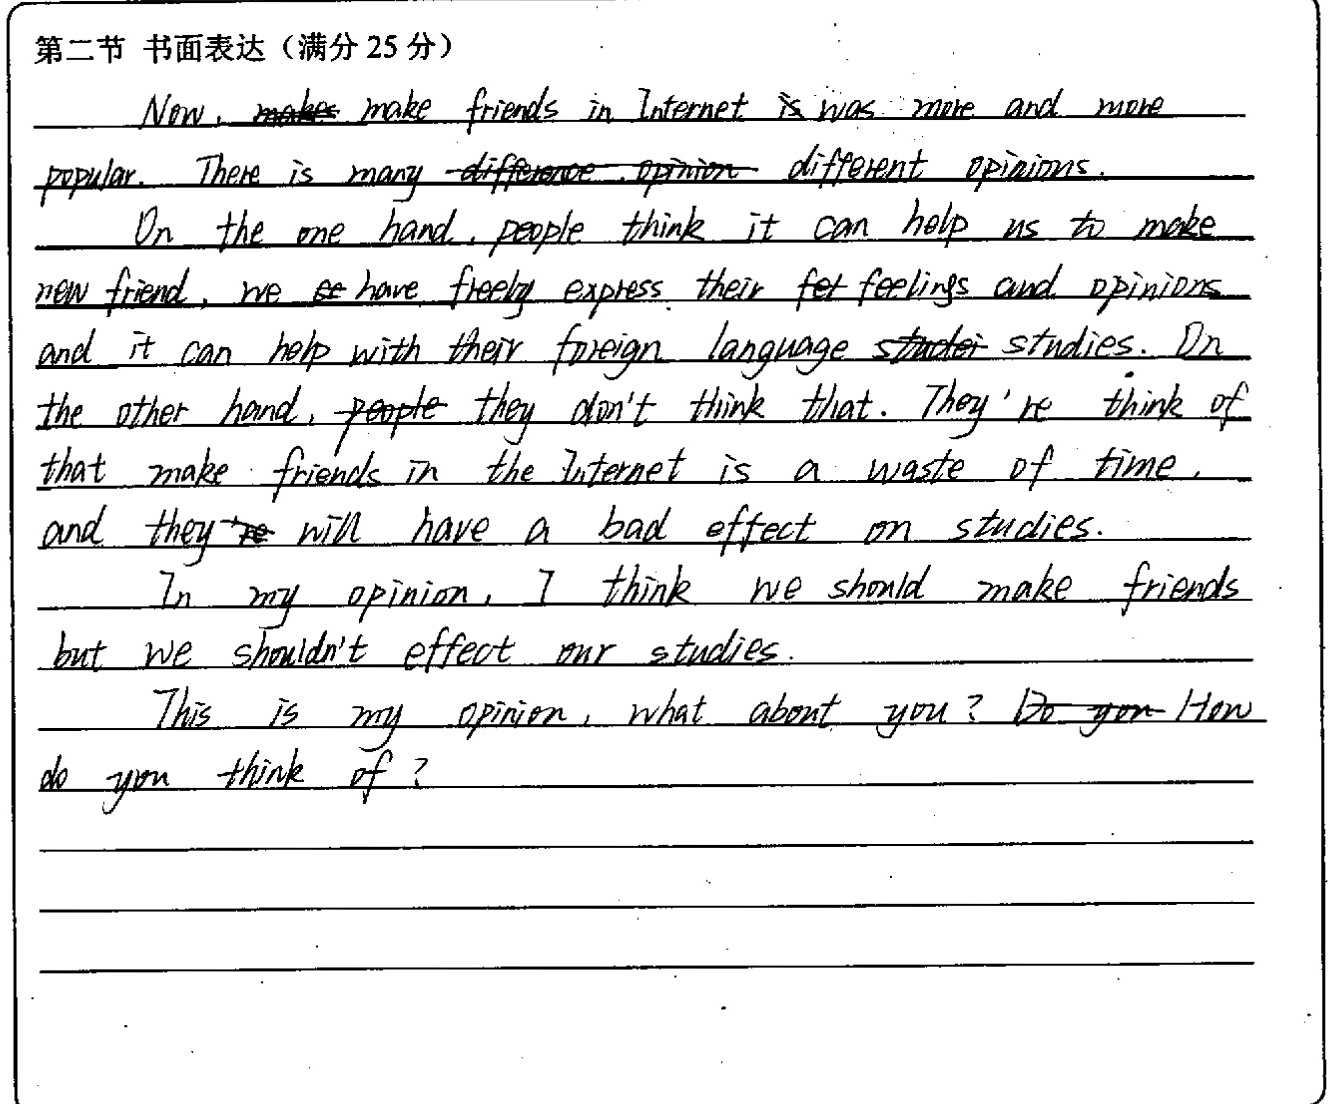 第二节 书面表达（满分 25 分）
Now, makes make friends in Internet is was more and more
popular. There is many difference opinion different opinions.
On the one hand, people think it can help us to make
new friend, we have freely express their feelings and opinions
and it can help with their foreign language studies. On
the other hand, people they don't think that. They're think of
that make friends in the Internet is a waste of time,
and they're will have a bad effect on studies.
In my opinion, I think we should make friends
but we shouldn't effect our studies.
This is my opinion, what about you? Do you How
do you think of?